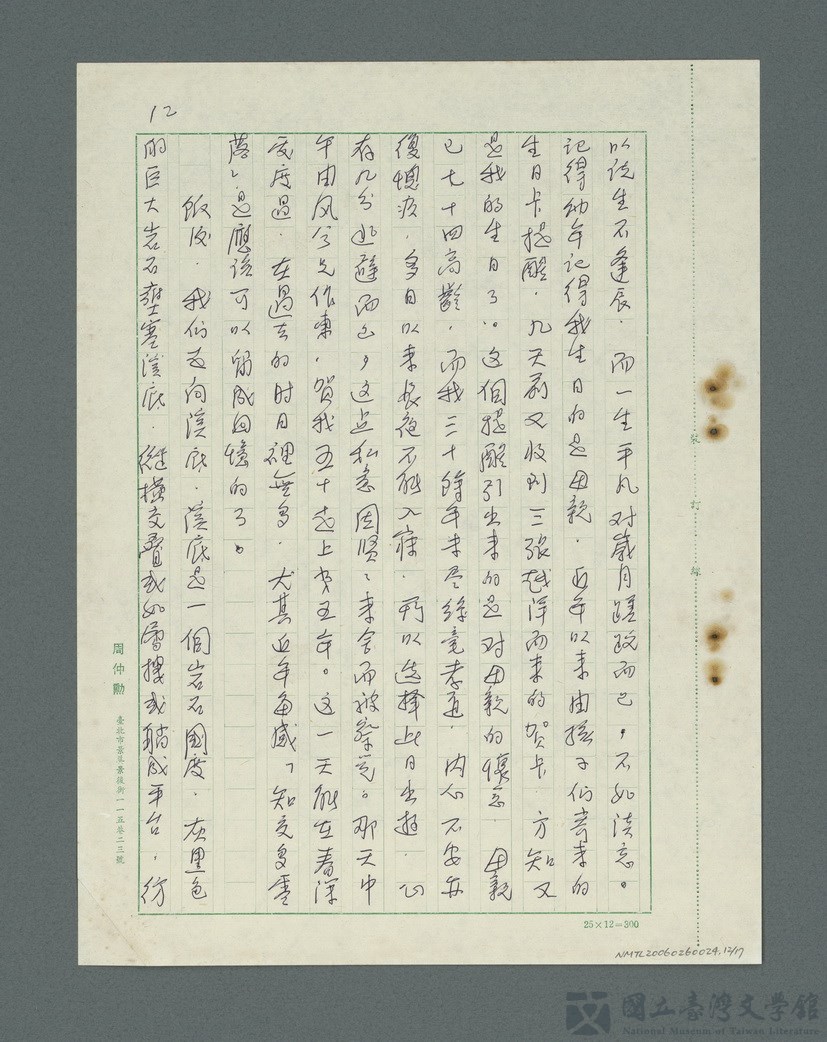 12
以说生不逢辰．而一生平凡对歲月蹉跎而已，不如淡忘。
记得幼年记得我生日的是母親．近年以来由孩子们寄来的
生日卡提醒．几天前又收到三張越洋而来的贺卡．方知又
是我的生日了。这個提醒引出来的是对母親的懷念．母親
已七十四高齡，而我三十餘年未尽絲毫孝道，内心不安亦
復愧疚．多日以来長夜不能入寐．所以选择此日出遊．心
存几分逃避而已，这点私意因贤々来舍而被察觉。那天中
午由风兮兄作東，贺我五十走上第五年。这一天能在春深
处度過．在過去的时日裡無多．尤其近年每感「知交多零
落」是應该可以留成回憶的了。
飯後．我们走向溪底．溪底是一個岩石國度．灰黑色
的巨大岩石壅塞溪底．縱橫交疊或如層樓或躺成平台，彷
裝訂線
周仲勳
臺北市景美景後街一一五巷二三號
25×12=300
NMTL20060260024.12/17
國立臺灣文學館
National Museum of Taiwan Literature